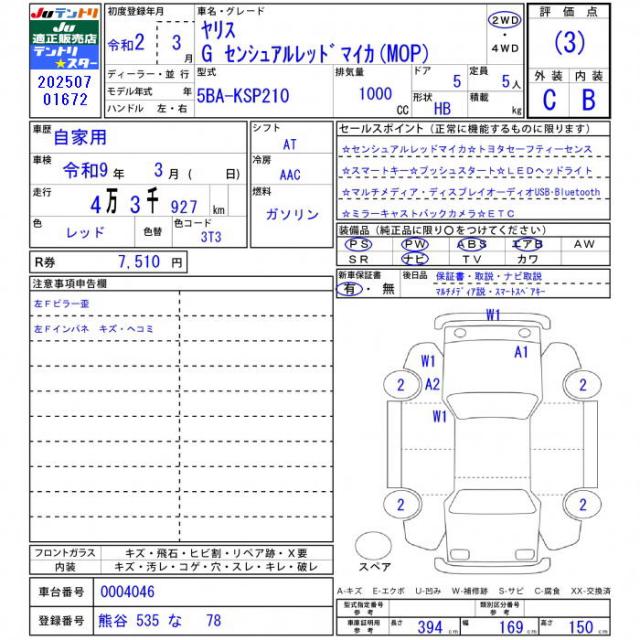 JUテントリ
JU
適正販売店
テントリ
★スター
202507
01672
初度登録年月
令和2 3月
ディーラー・並行
モデル年式 年
ハンドル 左・右
車名・グレード
ヤリス
G センシュアルレッドマイカ(MOP)
2WD
・
4WD
型式
5BA-KSP210
排気量
1000
CC
ドア 5
定員 5人
形状 HB
積載 kg
評価点
(3)
外装 内装
C B
車歴
自家用
車検
令和9年 3月( 日)
走行
4万 3千 927 km
色
レッド
色替
色コード
3T3
シフト
AT
冷房
AAC
燃料
ガソリン
R券 7,510 円
セールスポイント(正常に機能するものに限ります)
☆センシュアルレッドマイカ☆トヨタセーフティーセンス
☆スマートキー☆プッシュスタート☆LEDヘッドライト
☆マルチメディア・ディスプレイオーディオUSB・Bluetooth
☆ミラーキャストバックカメラ☆ETC
装備品(純正品に限り○をつけてください)
PS PW ABS エアB AW
SR ナビ TV カワ
新車保証書
有・無
後日品
保証書・取説・ナビ取説
マルチメディア説・スマートスペアキー
注意事項申告欄
左Fピラー歪
左Fインパネ キズ・ヘコミ
フロントガラス キズ・飛石・ヒビ割・リペア跡・X要
内装 キズ・汚レ・コゲ・穴・スレ・キレ・破レ
車台番号 0004046
登録番号 熊谷 535 な 78
W1
W1
A1
A2
2
2
W1
2
2
スペア
A-キズ E-エクボ U-凹み W-補修跡 S-サビ C-腐食 XX-交換済
型式指定番号
参考
類別区分番号
参考
車庫証明用
参考
長さ 394 cm
幅 169 cm
高さ 150 cm